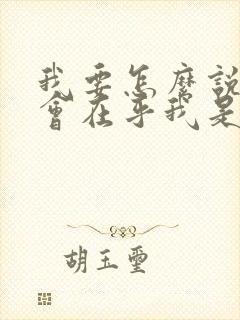 我要怎麼說
會在乎我是
胡玉璽